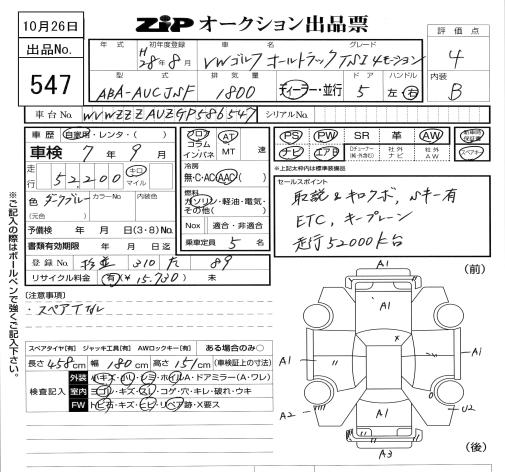 10月26日
ZiP オークション出品票
出品No.
547
評価点
4
内装
B
年式 初年度登録 車名 グレード
H28年8月 VWゴルフ オールトラック TSI 4モーション
型式 排気量 ドア ハンドル
ABA-AUCJSF 1800 ディーラー・並行 5 左 右
車台No. WVWZZZAUZGP586547 シリアルNo.
車歴 自家用・レンタ・( )
車検 7年9月
走行 52,200 キロ マイル
色 ダークブルー カラーNo 内装色
(元色)
予備検 年 月 日(3・8)No.
書類有効期限 年 月 日迄
登録No. 杉並 310 た 89
リサイクル料金 有(¥15,730) 未
フロア
コラム
インパネ
AT
MT 速
冷房
無・C・AC(AAC)
燃料
ガソリン・軽油・電気・
その他( )
Nox 適合・非適合
乗車定員 5 名
PS PW SR 革 AW 新車時保証書
ナビ エアB 社外ナビ 社外AW スペアキー
※上記太枠内は標準装備品
セールスポイント
取説&キロクボ, Sキー有
ETC, キープレーン
走行52000k台
※ご記入の際はボールペンで強くご記入下さい。
[注意事項]
・スペアタイヤ
スペアタイヤ[有] ジャッキ工具[有] AWロックキー[有] ある場合のみ○
長さ 458cm 幅 180cm 高さ 151cm (車検証上の寸法)
検査記入
外装 小キズ・小ヘコ・シミ・ホイルA・ドアミラー(A・ワレ)
室内 ヨゴレ・キズ・スレ・コゲ・穴・キレ・破れ・ウキ
FW トビ石・キズ・ヒビ・リペア跡・X要ス
(前)
A1
A1
A1
X
A1
A2
U2
A1
A3
(後)